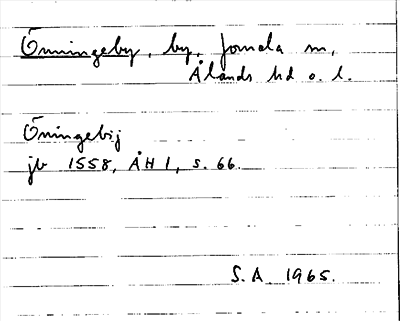 Önningeby, by, Jomala sn,
Ålands hd o. l.
Öningebij
jb 1558, ÅH 1, s. 66.
S.A. 1965.